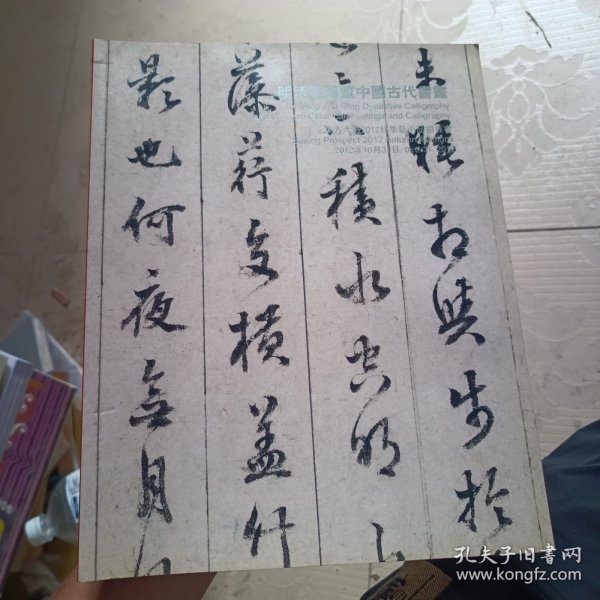 暨中國古代書畫
Ming and Qing Dynasties Calligraphy
Paintings and Calligraphy
2012
Beijing Prospect 2012 Autumn
2012年10月
未寢相與步於
積水空明
藻荇交橫蓋竹
影也何夜無月
孔夫子旧书网
www.kongfz.com